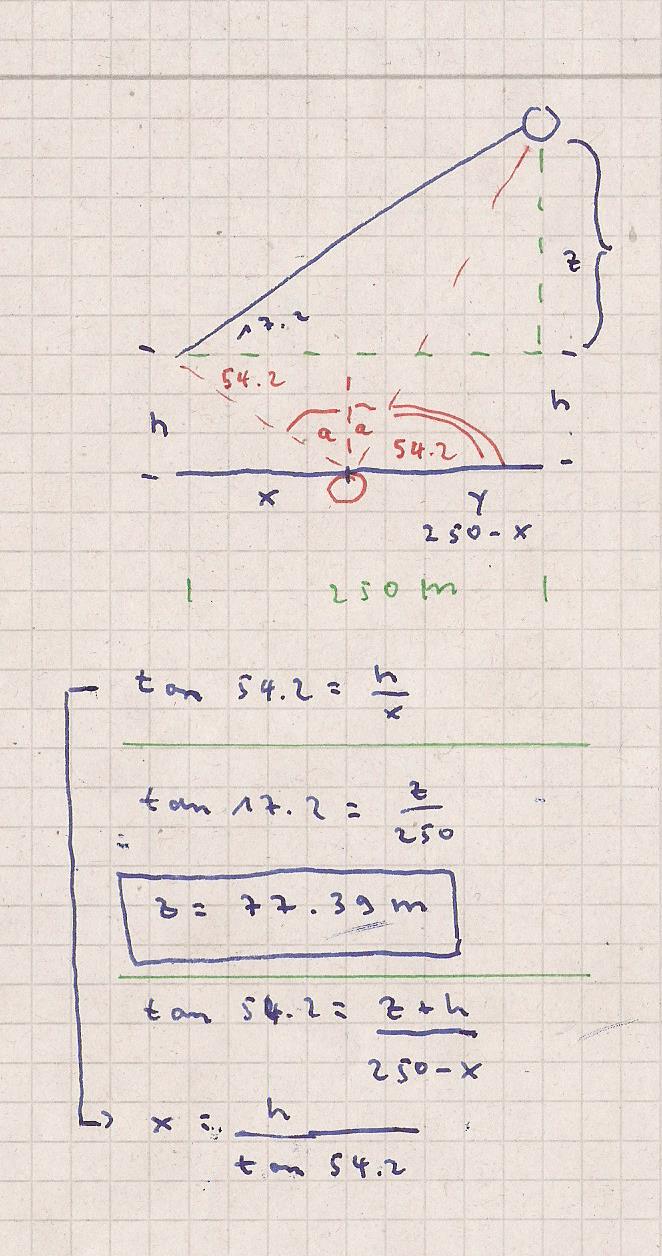 z
17.2
54.2
h
h
a a
54.2
x
y
250-x
250 m
tan 54.2 = h/x
tan 17.2 = z/250
z = 77.39 m
tan 54.2 = z+h/250-x
x = h/tan 54.2